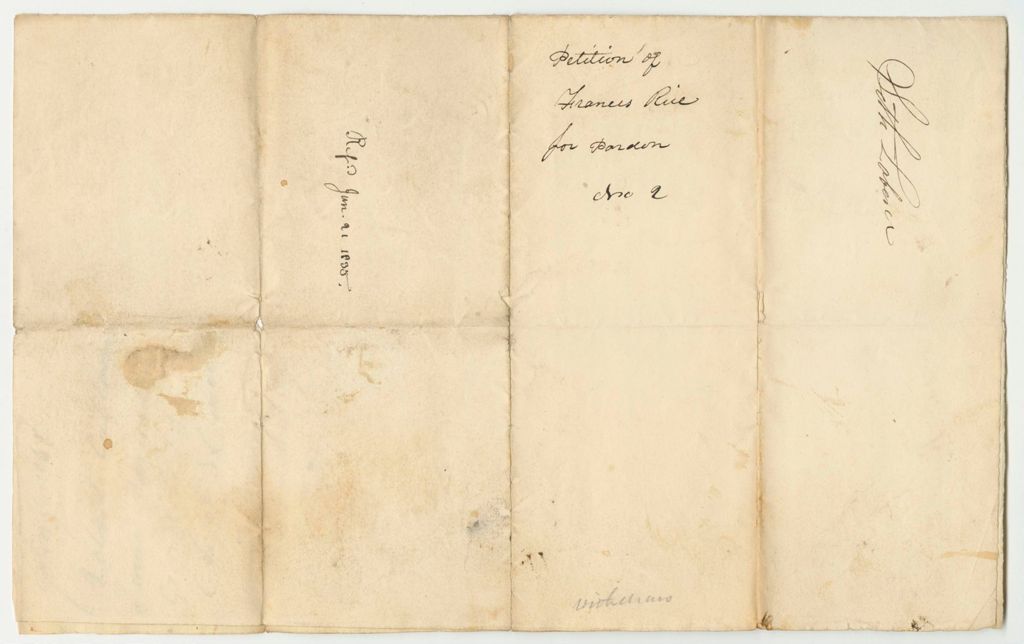 Petition of
Francis Rice
for Pardon
No 2
Refd Jan. 21 1835.
Seth
Withdrawn